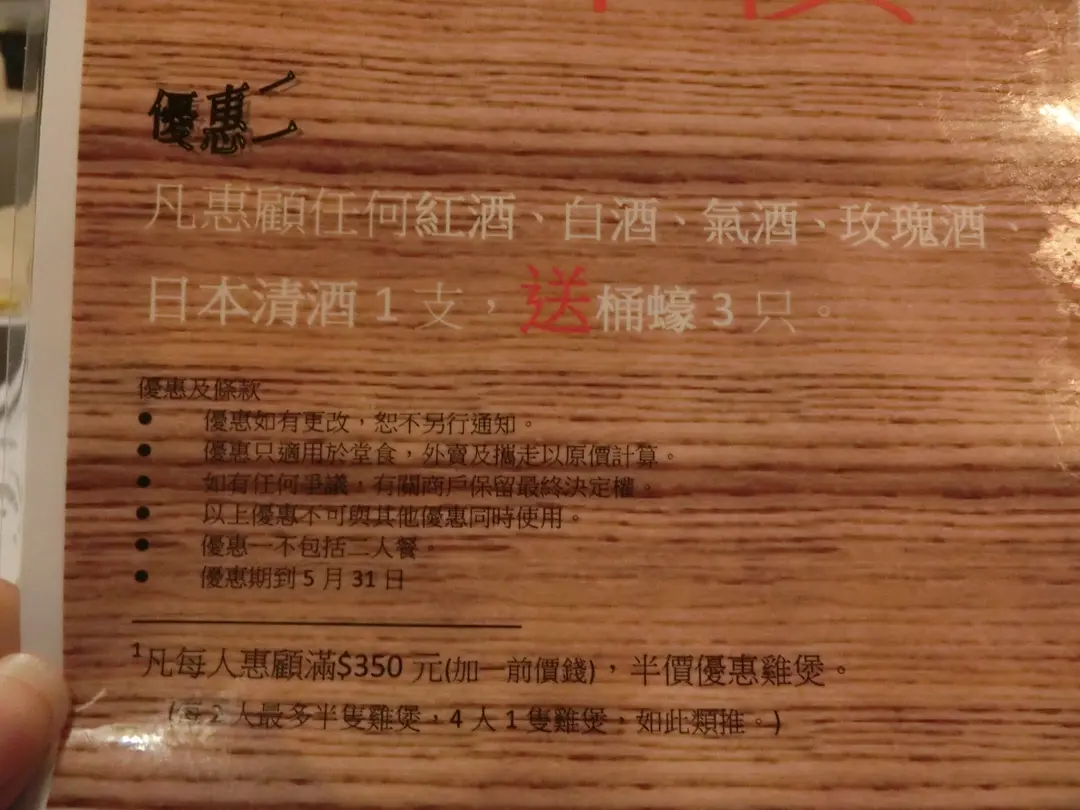 優惠二
凡惠顧任何紅酒、白酒、氣酒、玫瑰酒、
日本清酒 1 支，送桶蠔 3 只。
優惠及條款
● 優惠如有更改，恕不另行通知。
● 優惠只適用於堂食，外賣及攜走以原價計算。
● 如有任何爭議，有關商戶保留最終決定權。
● 以上優惠不可與其他優惠同時使用。
● 優惠一不包括二人餐。
● 優惠期到 5 月 31 日
1凡每人惠顧滿$350 元(加一前價錢)，半價優惠雞煲。
(每 2 人最多半隻雞煲，4 人 1 隻雞煲，如此類推。)